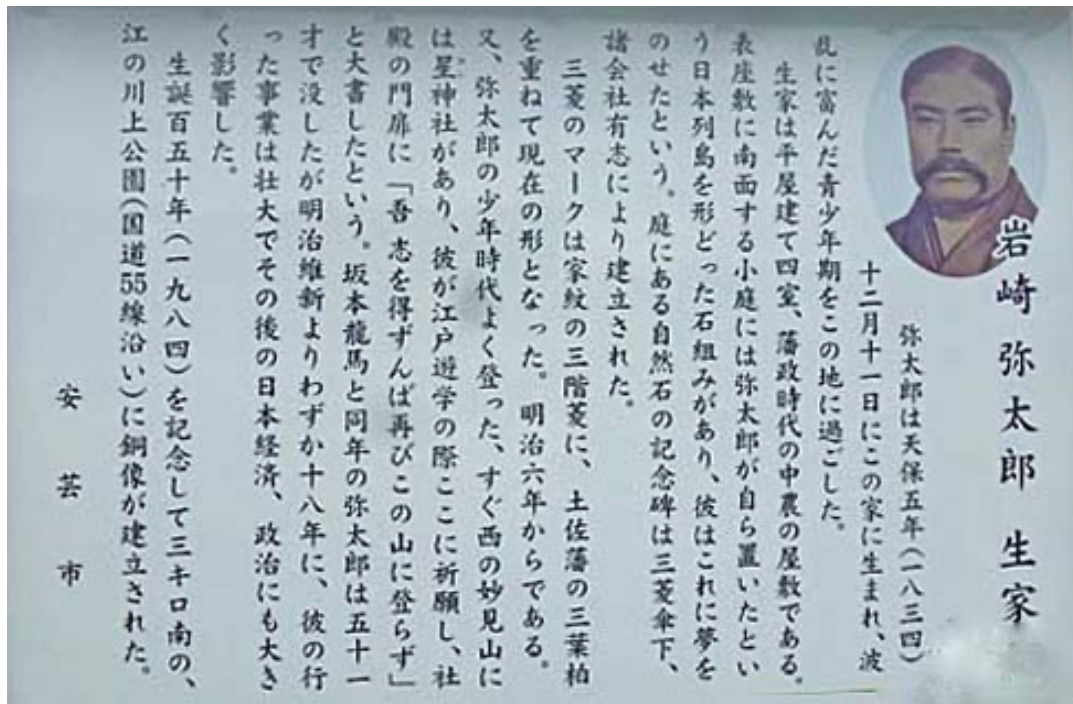 岩崎弥太郎 生家
弥太郎は天保五年(一八三四)
十二月十一日にこの家に生まれ、波
乱に富んだ青少年期をこの地に過ごした。
生家は平屋建て四室、藩政時代の中農の屋敷である。
表座敷に南面する小庭には弥太郎が自ら置いたとい
う日本列島を形どった石組みがあり、彼はこれに夢を
のせたという。庭にある自然石の記念碑は三菱傘下、
諸会社有志により建立された。
三菱のマークは家紋の三階菱に、土佐藩の三葉柏
を重ねて現在の形となった。明治六年からである。
又、弥太郎の少年時代よく登った、すぐ西の妙見山に
は星神社があり、彼が江戸遊学の際ここに祈願し、社
殿の門扉に「吾志を得ずんば再びこの山に登らず」
と大書したという。坂本龍馬と同年の弥太郎は五十一
才で没したが明治維新よりわずか十八年に、彼の行
った事業は壮大でその後の日本経済、政治にも大き
く影響した。
生誕百五十年(一九八四)を記念して三キロ南の、
江の川上公園(国道55線沿い)に銅像が建立された。
安芸市